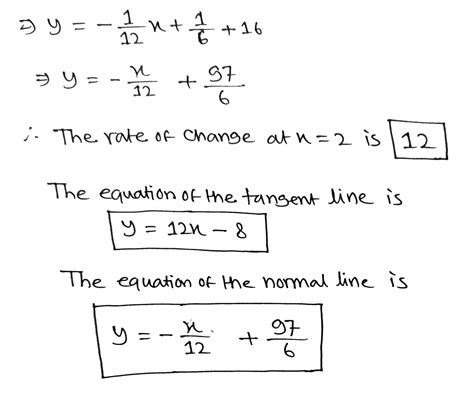 ⇒ y = -1/12 x + 1/6 + 16
⇒ y = -x/12 + 97/6
∴ The rate of change at x = 2 is 12
The equation of the tangent line is
y = 12x - 8
The equation of the normal line is
y = -x/12 + 97/6